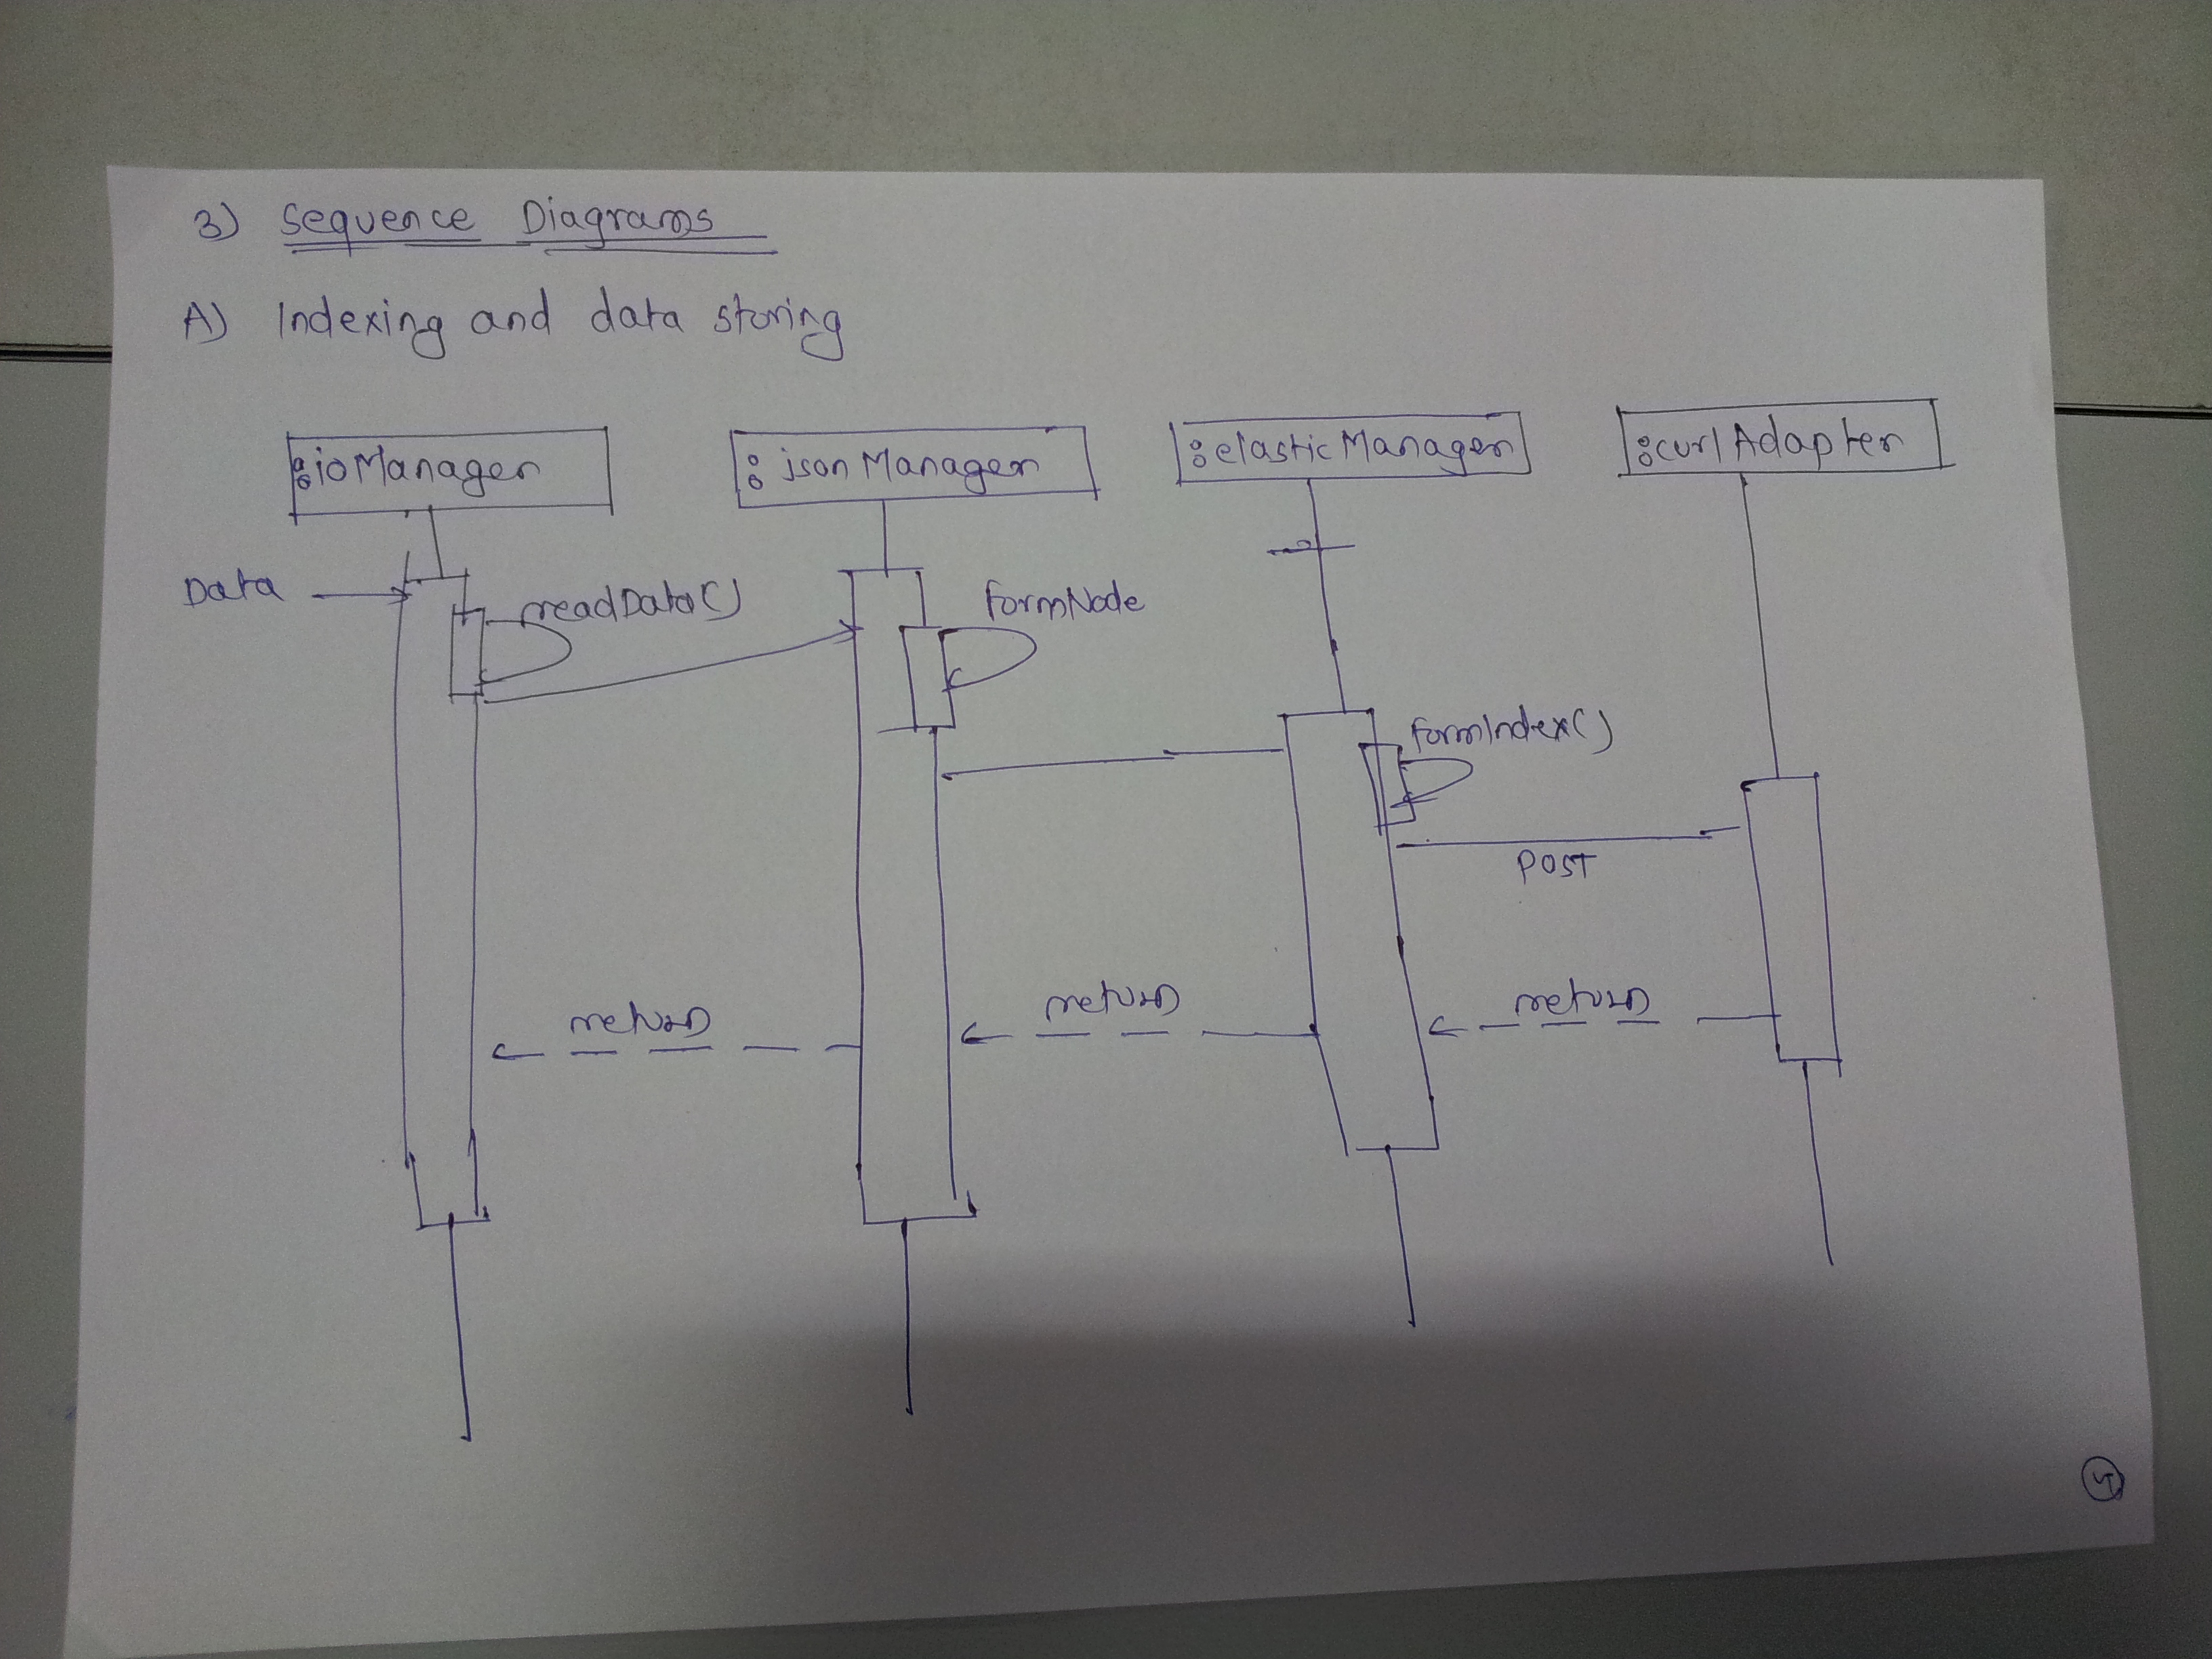 3) Sequence Diagrams
A) Indexing and data storing
:ioManager
:jsonManager
:elasticManager
:curlAdapter
Data
readData()
formNode
formIndex()
POST
return
return
return